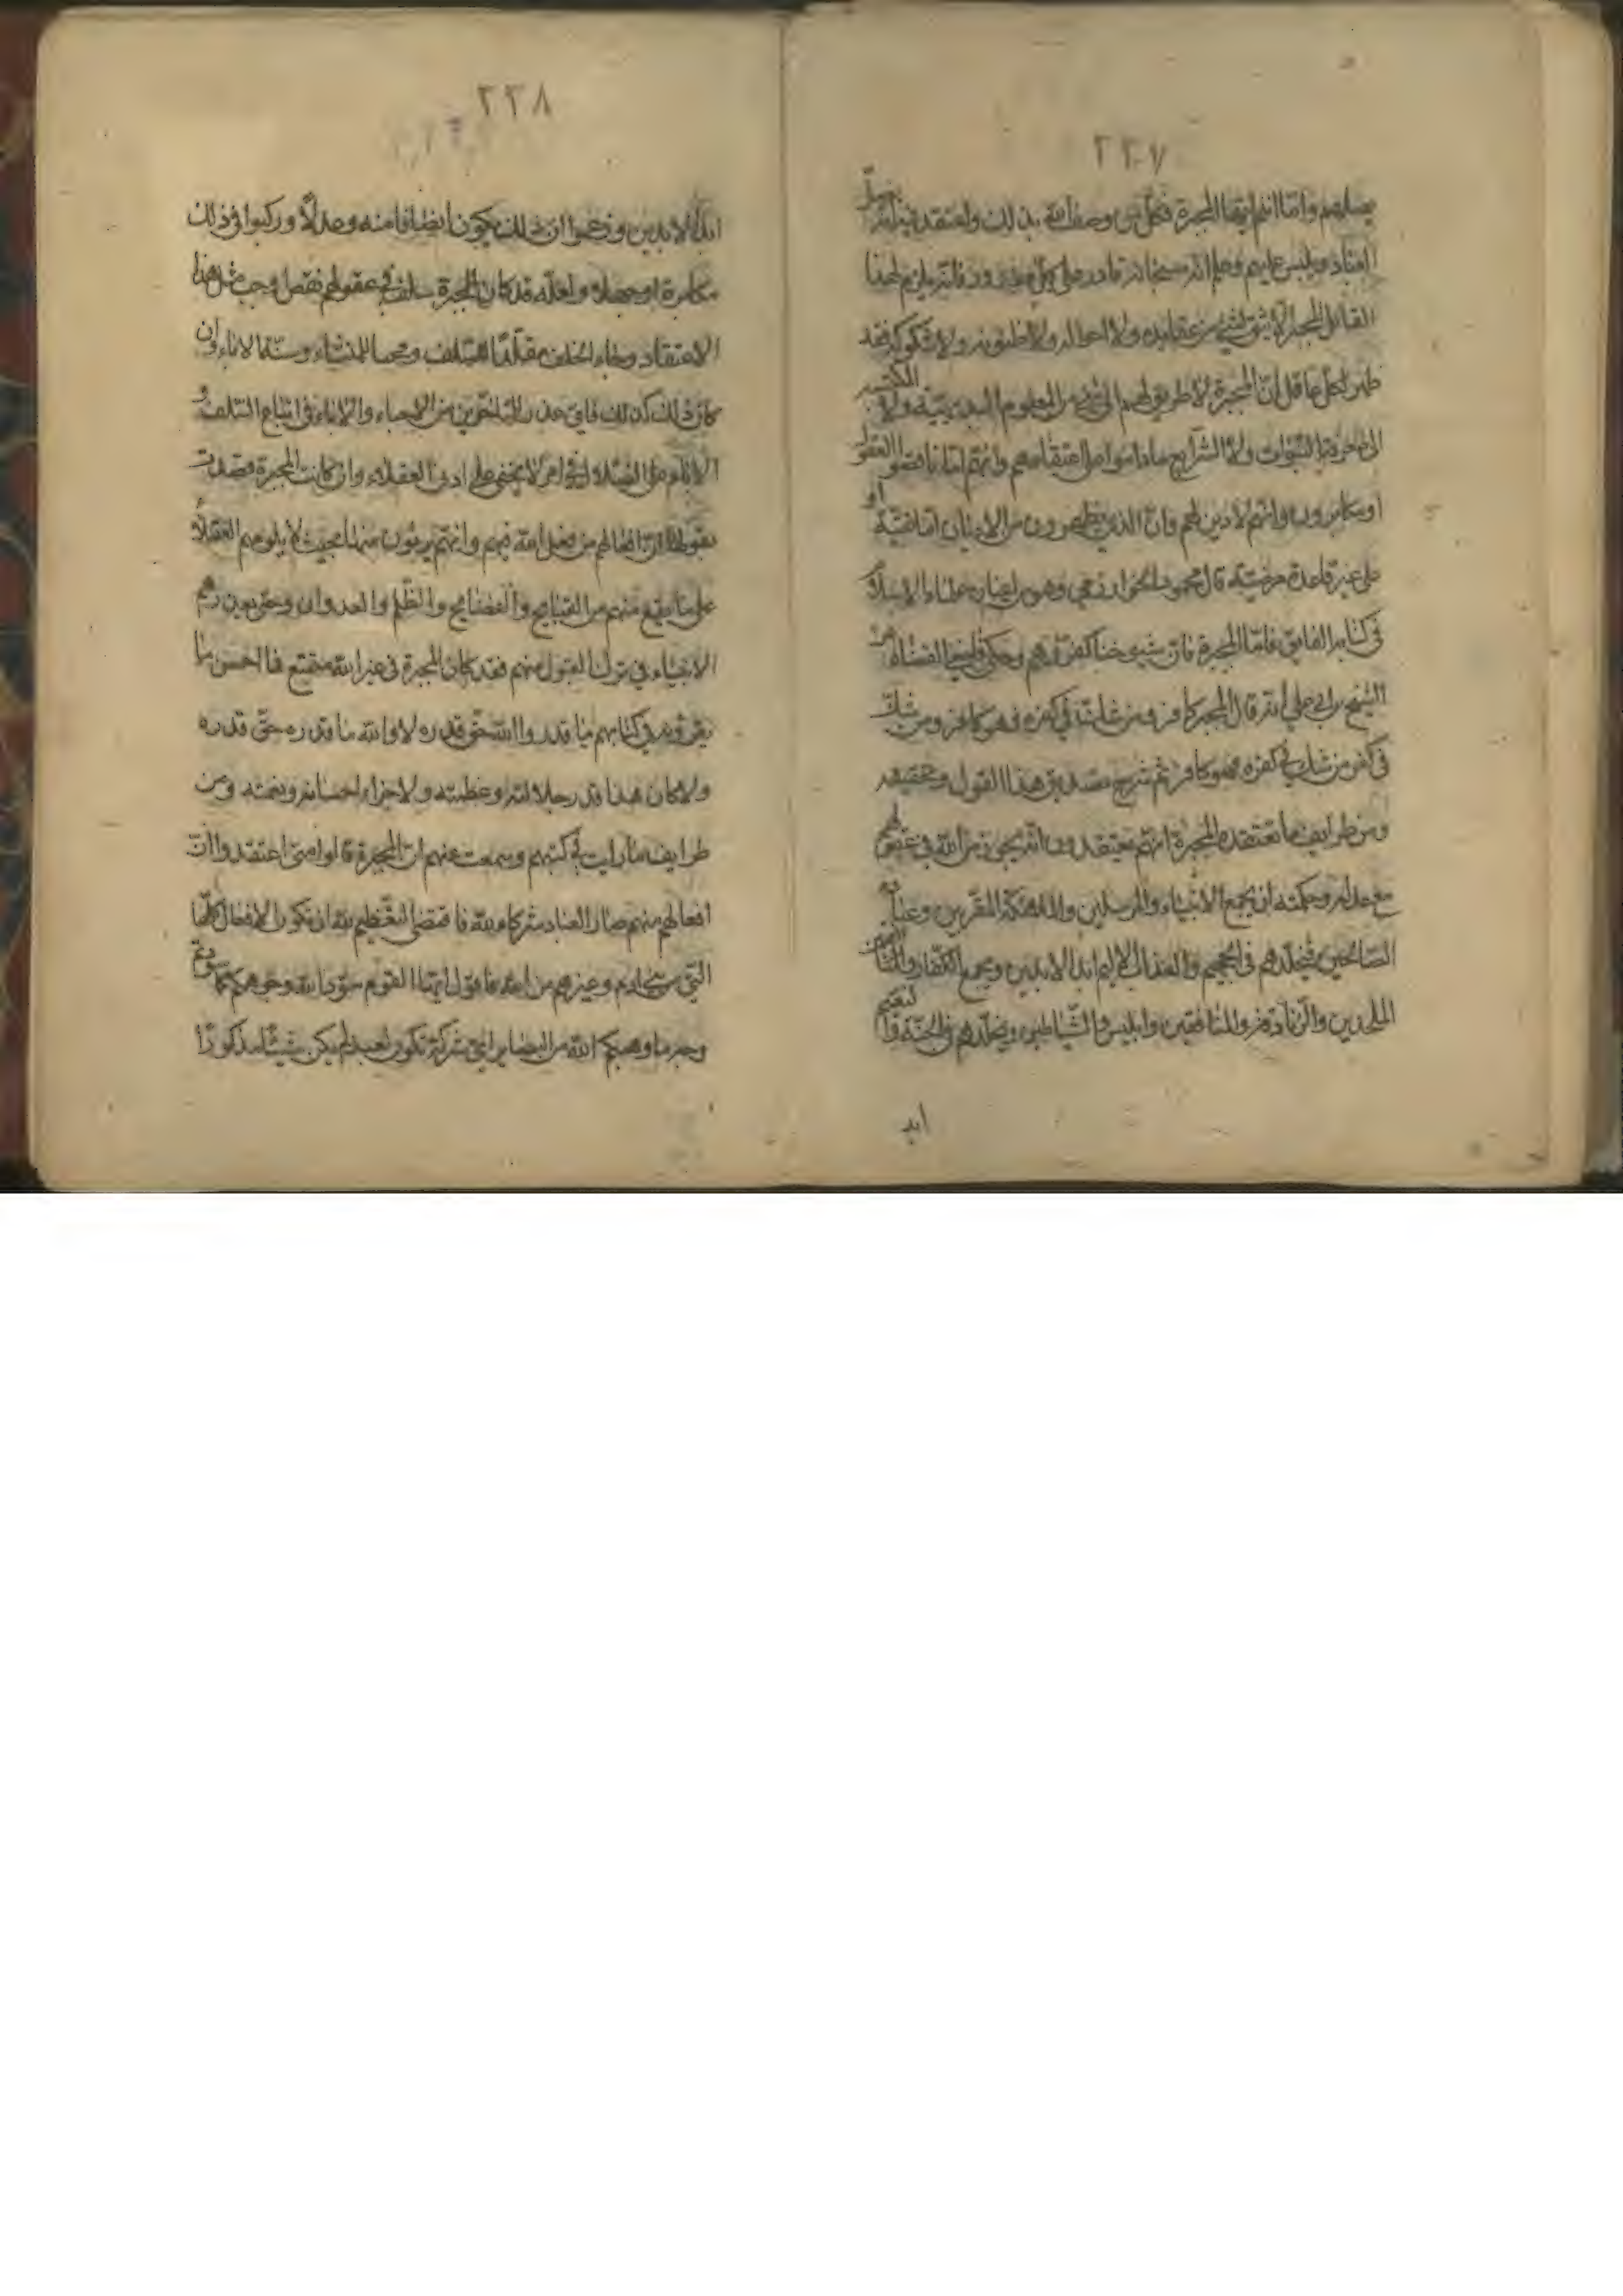 ٢٢٧
يضلهم واما انتم ايها المجبرة فكل من وصف الله بذلك واعتقد فيه انه يضل
العباد ويلبس عليهم وعلم انه سبحانه قادر على كل مقدور فانه يلزم لهذا
القائل المجبر الا يثق بشيء من عقايده ولا احواله ولا ظنونه ولا شكوكه فقد
ظهر لكل عاقل ان المجبرة لا طريق لهم الى شيء من العلوم البديهية ولا الكسبية
الى معرفة النبوات ولا الشرايع ماداموا على اعتقادهم وانهم اما ناقصوا العقول
او مكابرون وانهم لا دين لهم وان الذي يظهرون من الاديان اما تقية او
على غير قاعدة مرضية قال محمود الخوارزمي وهو من اعيان علماء الاسلام
في كتابه الفايق فاما المجبرة فان شيوخنا كفروهم وحكى قاضي القضاة عن
الشيخ ابي علي انه قال المجبر كافر ومن شك في كفره فهو كافر ومن شك
في كفر من شك في كفره فهو كافر ثم شرح تصديق هذا القول وتحقيقه
ومن طرايف ما تعتقده المجبرة انهم يعتقدون انه يجوز من الله في عقولهم
مع عدله وحكمته ان يجمع الانبياء والمرسلين والملائكة المقربين وعباده
الصالحين فيخلدهم في الجحيم والعذاب الاليم ابد الابدين ويجمع الكفار والمنافقين
الملحدين والزنادقة والمنافقين وابليس والشياطين ويخلدهم في الجنة والنعيم
ابد
٢٢٨
ابد الابدين وزعموا ان ذلك يكون انصافا منه وعدلا وركبوا في ذلك
مكابرة او جهلا ولعله قد كان للمجبرة سلف في عقولهم نقص اوجب مثل هذا
الاعتقاد وجاء الخلف مقلدا للسلف ومحبا للمنشاء وسنة الاباء وان
كان ذلك كذلك فاي عذر للمتاخرين من الاحياء والابناء في اتباع السلف و
الاباء على الضلال في امر لا يخفى على ادنى العقلاء وان كانت المجبرة قصدت
بقولها ان افعالهم من فعل الله فيهم وانهم بريئون منها بحيث لا يلومهم العقلاء
على ما يقع منهم من القبايح والفضايح والظلم والعدوان وحتى يعذرهم
الانبياء في ترك القبول منهم فقد كان للمجبرة في غير الله متسع فما احسن ما
يقرؤنه في كتابهم ما قدروا الله حق قدره لا والله ما قدره حق قدره
ولا كان هذا قدر جلالته وعظمته ولا جزاء احسانه ونعمته ومن
طرايف ما رايت في كتبهم وسمعت عنهم ان المجبرة قالوا متى اعتقدوا ان
افعالهم منهم صار العباد شركاء لله فاقتضى التعظيم لله ان تكون الافعال كلها
التي من بني ادم وغيرهم من الله فاقول ايها القوم سودا لله وجوهكم كما سودتم
وجه ما وهبكم الله من البصاير اي شركة تكون لعبد لم يكن شيئا مذكورا